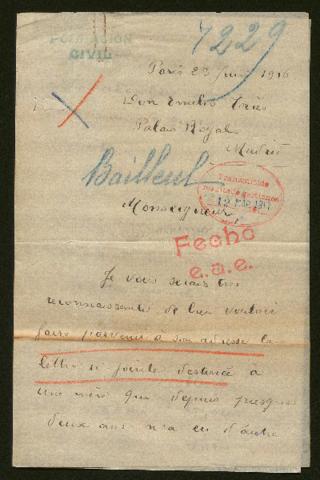 POBLACION
CIVIL
7229
Paris 23 Juin 1916
Don Emilio
Palais Royal
Madrid
Bailleul
Monseigneur,
Fecho
e.a.e.
Je vous serais très
reconnaissante de bien vouloir
faire parvenir à son adresse la
lettre ci jointe destinée à
une mère qui depuis presque
deux ans n'a eu d'autre